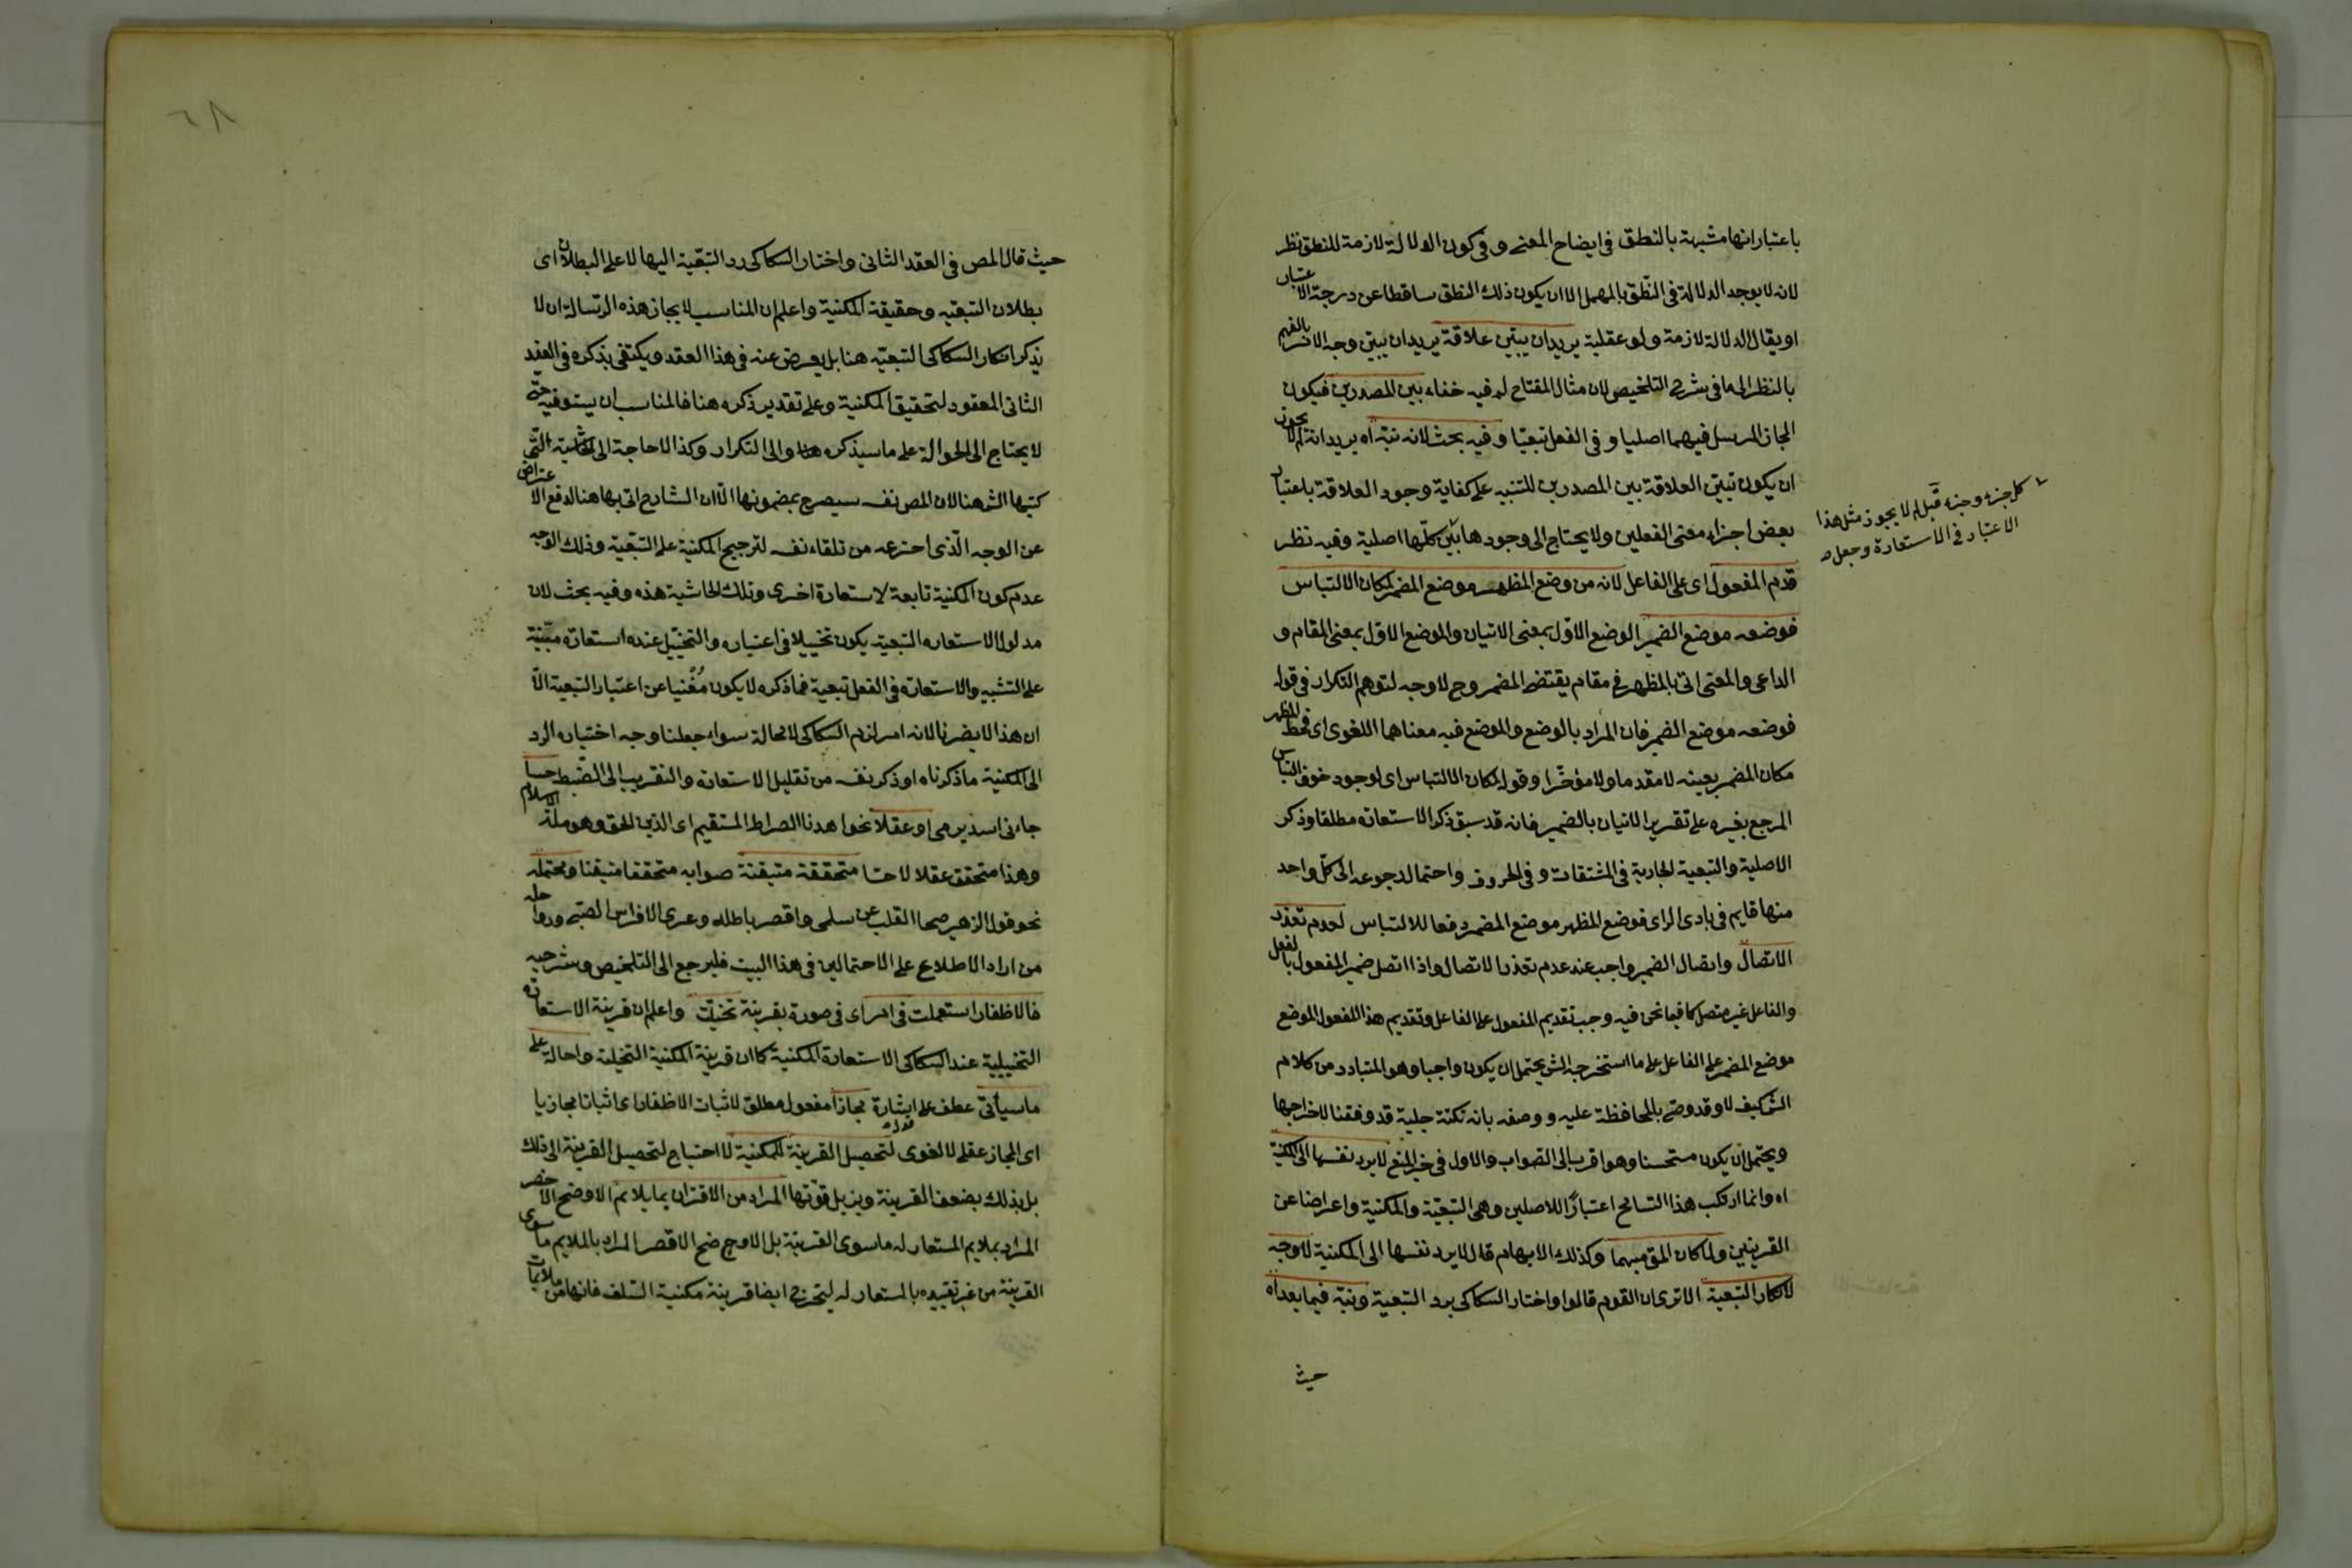 باعتبار انها مشبهة بالنطق فى ايضاح المعنى وفى كون الدلالة لازمة للنطق نظر
لانه لا يوجد الدلالة فى النطق بالمهمل الا ان يكون ذلك النطق ساقطا عن درجة الاعتبار
او يقال الدلالة لازمة ولو عقلية يريد ان يبين علاقة يريد ان يبين وجه الا
بالنظر الى ما فى شرح التلخيص لان مثال المفتاح له فيه خفاء بين المصدرين فيكون
المجاز المرسل فيهما اصليا و فى الفعل تبعيا وفيه بحث لانه نبه اه يريد انه لم لا يجوز
ان يكون تبيين العلاقة بين المصدرين للتنبيه على كفاية وجود العلاقة باعتبار
بعض اجزاء معنى الفعلين ولا يحتاج الى وجودها بين كلها اصلية وفيه نظر
قدم المفعول اى على الفاعل لانه من وضع المظهر موضع المضمر لمكان الالتباس
فوضعه موضع الضمير الوضع الاول بمعنى الاتيان والموضع الاول بمعنى المقام و
الداعى والمعنى اتى بالمظهر فى مقام يقتضى المضمر وح لا وجه لتوهم التكرار فى قوله
فوضعه موضع الضمير فان المراد بالوضع والموضع فيه معناهما اللغوى اى فحط المظهر فى
مكان المضمر بعينه لا مقدما ولا مؤخرا وقوله لمكان الالتباس اى لوجود خوف التباس
المرجع بغيره على تقدير الاتيان بالضمير فانه قد سبق ذكر الاستعارة مطلقا وذكر
الاصلية والتبعية الجارية فى المشتقات و فى الحروف واحتمال رجوعه الى كل واحد
منها قايم فى بادى الراى فوضع المظهر موضع المضمر دفعا للالتباس لعدم تعذر
الاتصال واتصال الضمير واجب عند عدم تعذر الاتصال واذا اتصل ضمير المفعول بالفعل
والفاعل غير متصل كما فيما نحن فيه وجب تقديم المفعول على الفاعل وتقديم هذا المفعول الموضع
موضع المضمر على الفاعل على ما استخرجه الش يحتمل ان يكون واجبا وهو المتبادر من كلام
الش كيف لا وقد وصى بالمحافظة عليه و وصفه بانه نكتة جلية قد وفقنا لاخراجها
ويحتمل ان يكون مستحسنا وهو اقرب الى الصواب والاول فى حيز المنع لا يرد نفسها الى المكنية
اه وانما ارتكب هذا التسامح اعتبارا للاصلين وهى التبعية والمكنية واعراضا عن
القرينتين ولما كان المق مبهما وكذلك الابهام قال لا يرد نفسها الى المكنية لا وجه
لانكار التبعية الا ترى ان القوم قالوا واختار السكاكى يرد التبعية ونبه فيما بعد اه
حيث
كل جزء وجزء قبل لم لا يجوز مثل هذا
الاعتبار فى الاستعارة وجعل
٦٨
حيث قال المص فى العقد الثانى واختار السكاكى رد التبعية اليها لا على البطلان اى
بطلان التبعيه وحقيقة المكنية واعلم ان المناسب لايجاز هذه الرسالة ان لا
يذكر انكار السكاكى التبعيه هنا بل يعرض عنه فى هذا العقد ويكتفى بذكره فى العقد
الثانى المعقود لتحقيق المكنية وعلى تقدير ذكره هنا فالمناسب ان يستوفيه حتى
لا يحتاج الى الحوالة على ما سيذكره والى التكرار وكذا لا حاجة الى الحاشية التى
كتبها الش هنا لان المص نفسه سيصرح بمضمونها الا ان الشارح اتى بها هنا لدفع الاعتراض
عن الوجه الذى اخترعه من تلقاء نفسه لترجيح المكنية على التبعية وذلك الوجه
عدم كون المكنية تابعة لاستعارة اخرى وتلك الحاشية هذه وفيه بحث لان
مدلول الاستعاره التبعية يكون تخييلا فى اعتباره والتخييل عنده استعارة مبنية
على التشبيه والاستعارة فى الفعل تبعية فما ذكره لا يكون مغنيا عن اعتبار التبعية الا
ان هذا لا يضرنا لانه امر لزم السكاكى لا محالة سواء جعلنا وجه اختياره الرد
الى المكنية ما ذكرناه او ذكر نفسه من تقليل الاستعارة والتقريب الى الضبط حسا
جاءنى اسد يرمى او عقلا نحو اهدنا الصراط المستقيم اى الدين الحق وهو ملة الاسلام
وهذا متحقق عقلا لا حسا متحققة متيقنة صوابه متحققا متيقنا ومحتمله
نحو قول الزهير صحا القلب عن سلمى واقصر باطله وعرى الافراس الصبى ورواحله
من اراد الاطلاع على الاحتمالين فى هذا البيت فليرجع الى التلخيص وشرحيه
فالاظفار استعملت فى امر اى فى صورة بقرينة تخيلت واعلم ان قرينة الاستعارة
التخييلية عند السكاكى الاستعارة المكنية كما ان قرينة المكنية التخيلية واحالة على
ما سيأتى عطف على اشارة مجازا مفعول مطلق لاثبات الاظفار اى اثباتا مجازيا
اى المجاز عقلى لا لغوى قوله لتحصيل القرينة للمكنية لا احتياج لتحصيل القرينة الى ذلك
بل بذلك يضعف القرينة ويزيل قوتها المراد من الاقتران بما يلائم الاوضح الاخصر
المراد بملايم المستعار له ما سوى القرينة بل الاوضح الاقصر المراد بالملايم ما سوى
القرينة من غير تقييده بالمستعار له ليتخرج ايضا قرينة مكنية السلف فانها من ملايمات